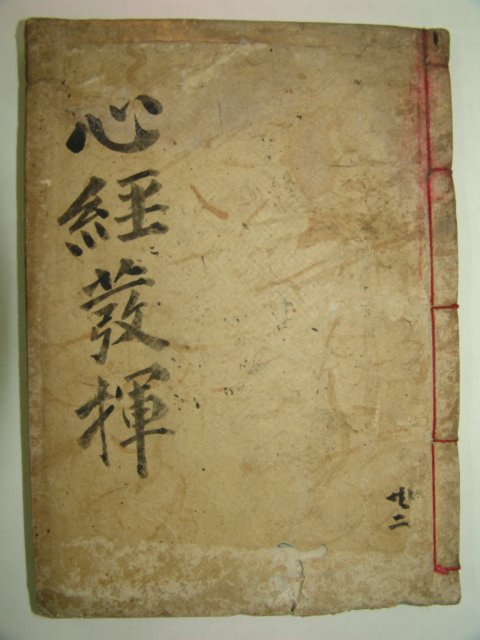 心經發揮
共二